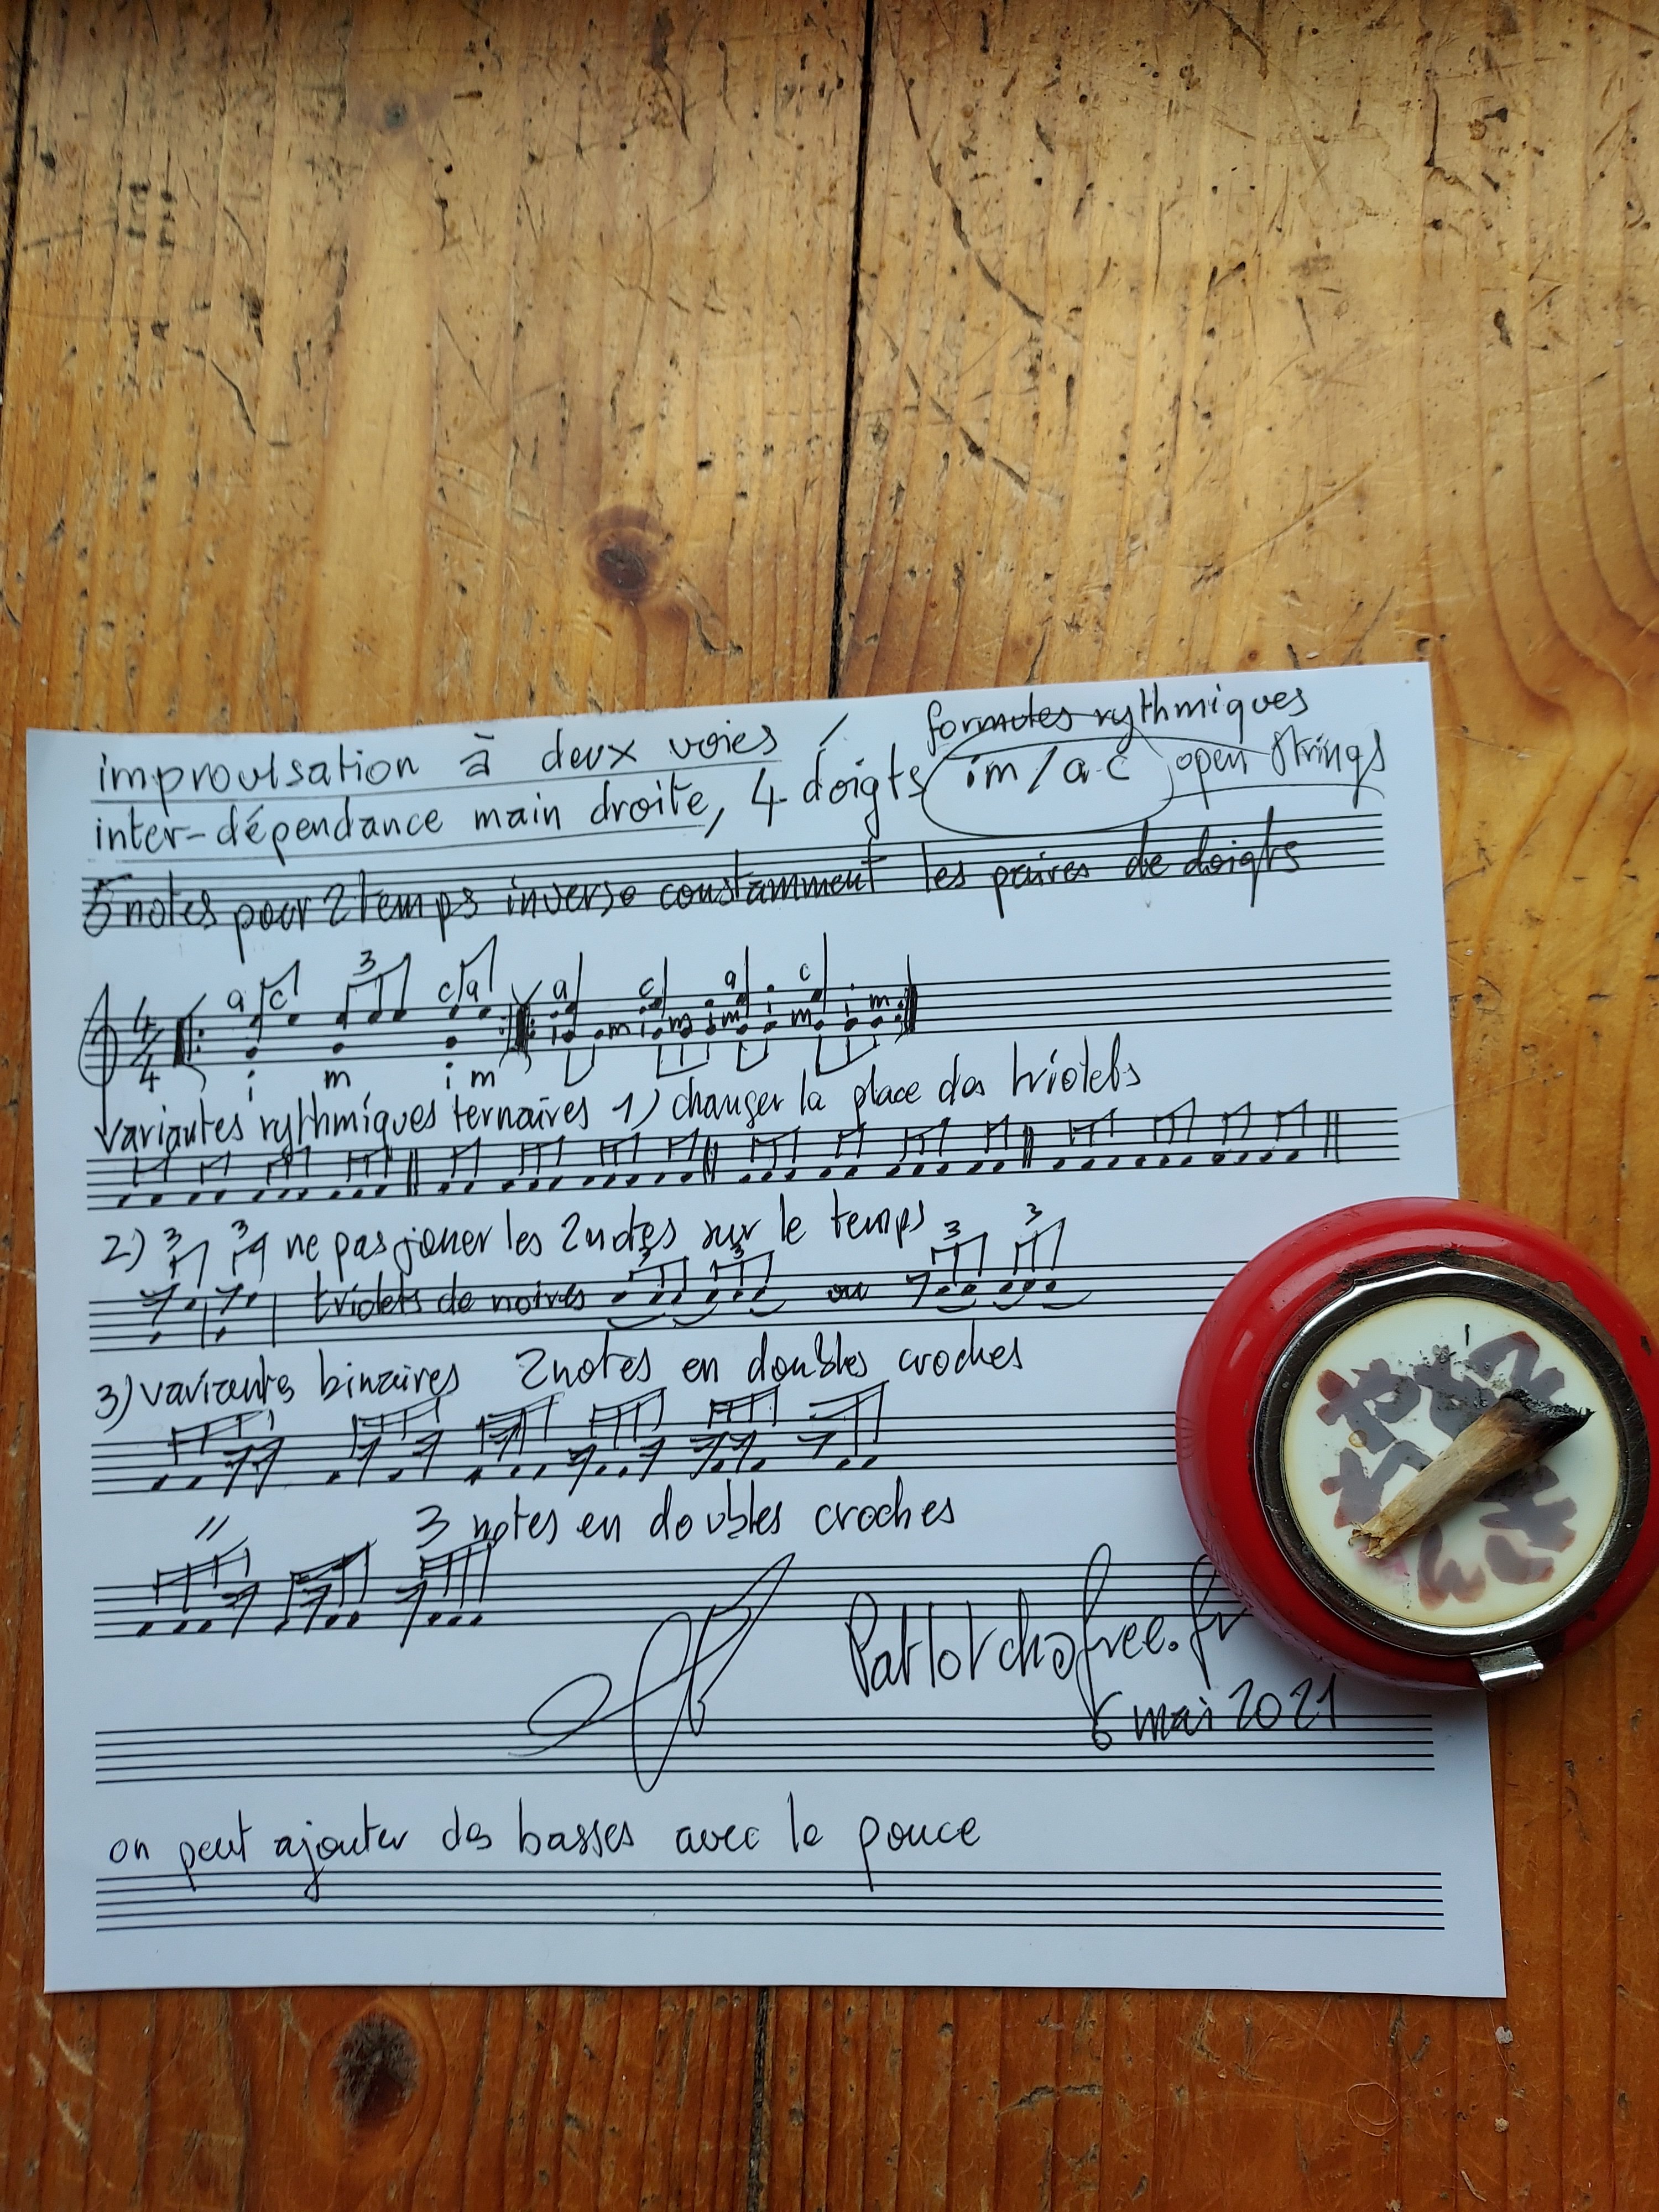 improvisation à deux voies / formules rythmiques
inter-dépendance main droite, 4 doigts im/a-c open strings
5 notes pour 2 temps inverse constamment les paires de doigts
a c 3 c a a c a c
4 4 i m i m i m i m i m i m i m
variantes rythmiques ternaires 1) changer la place des triolets
2) 3 3 ne pas jouer les 2 notes sur le temps
triolets de noires 3 3 ou 3 3
3) variantes binaires 2 notes en doubles croches
" 3 notes en doubles croches
Patlotch@free.fr
6 mai 2021
on peut ajouter des basses avec le pouce